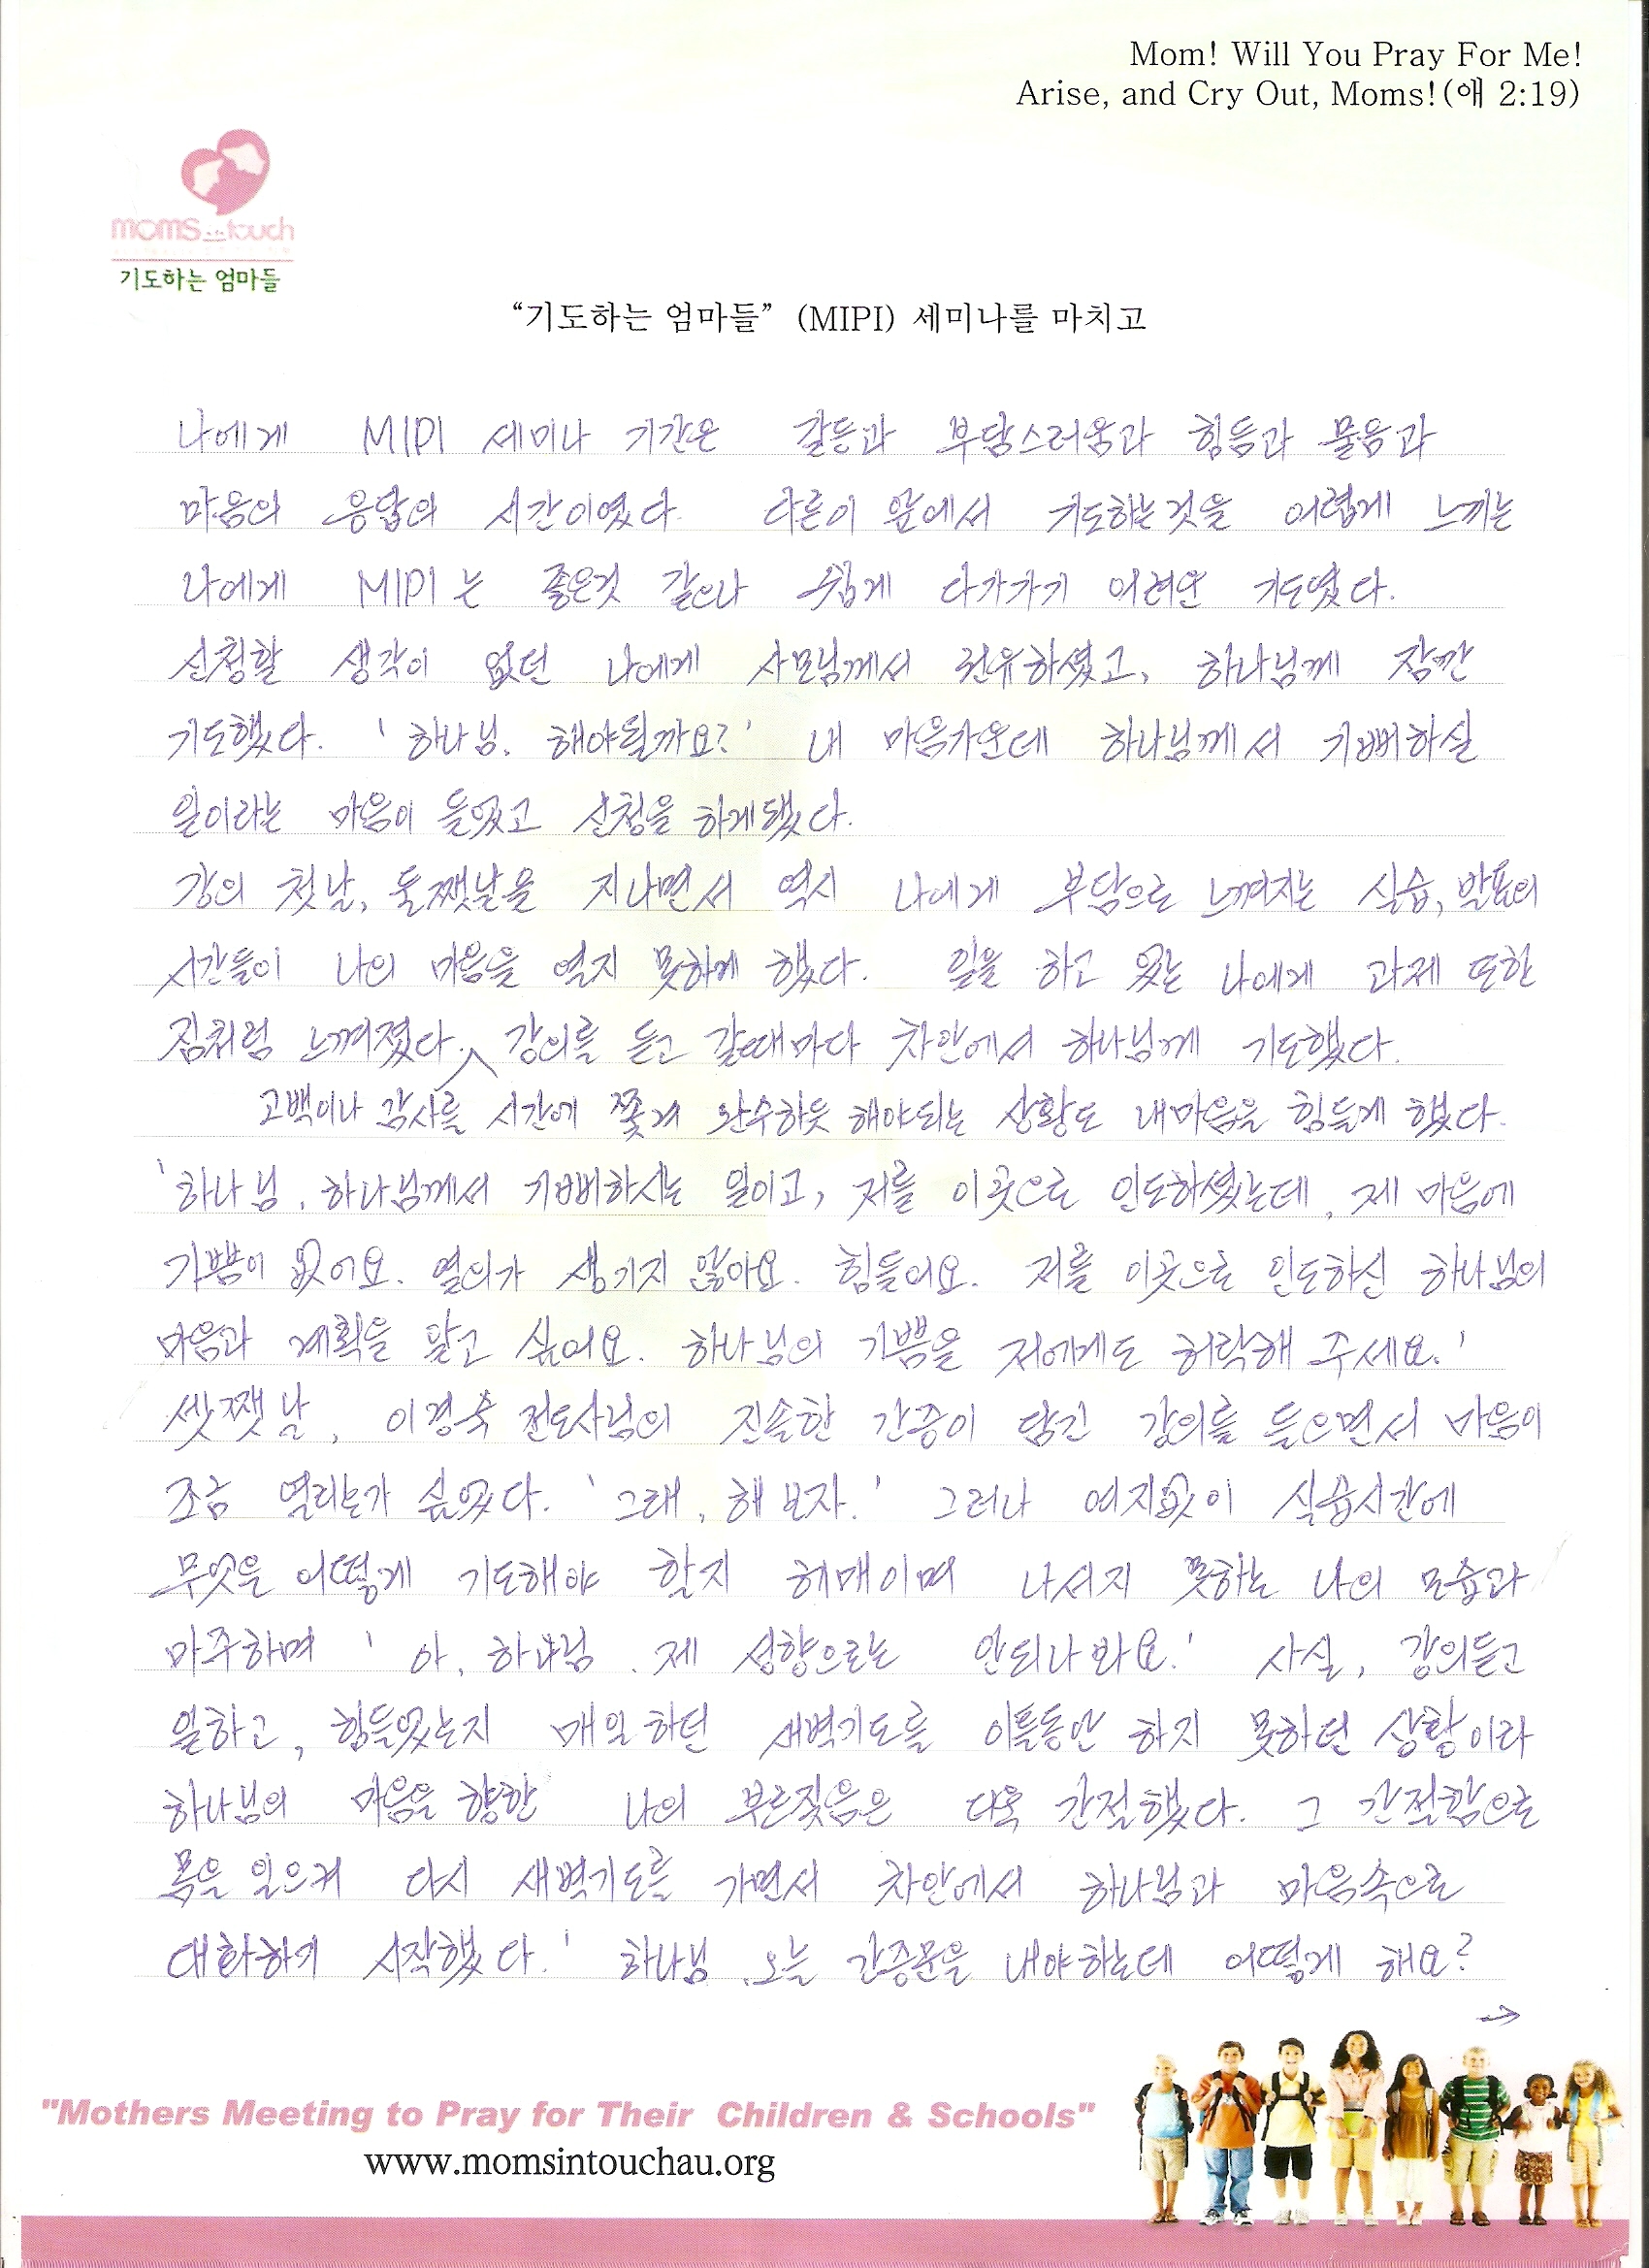 Mom! Will You Pray For Me!
Arise, and Cry Out, Moms!(애 2:19)
moms in touch
기도하는 엄마들
“기도하는 엄마들” (MIPI) 세미나를 마치고
나에게 MIPI 세미나 기간은 갈등과 부담스러움과 힘듬과 물음과
마음의 응답의 시간이였다. 다른이 앞에서 기도하는것을 어렵게 느끼는
나에게 MIPI는 좋은것 같으나 쉽게 다가가기 어려운 기도였다.
신청할 생각이 없던 나에게 사모님께서 권유하셨고, 하나님께 잠깐
기도했다. '하나님, 해야될까요?' 내 마음가운데 하나님께서 기뻐하실
일이라는 마음이 들었고 신청을 하게됐다.
강의 첫날, 둘째날을 지나면서 역시 나에게 부담으로 느껴지는 실습, 발표의
시간들이 나의 마음을 열지 못하게 했다. 일을 하고 있는 나에게 과제 또한
짐처럼 느껴졌다. 강의를 듣고 갈때마다 차안에서 하나님께 기도했다.
고백이나 감사를 시간에 쫓겨 완수하듯 해야되는 상황도 내마음을 힘들게 했다.
'하나님, 하나님께서 기뻐하시는 일이고, 저를 이곳으로 인도하셨는데, 제 마음에
기쁨이 없어요. 열의가 생기지 않아요. 힘들어요. 저를 이곳으로 인도하신 하나님의
마음과 계획을 알고 싶어요. 하나님의 기쁨을 저에게도 허락해 주세요.'
셋쨋날, 이경숙 전도사님의 진솔한 간증이 담긴 강의를 들으면서 마음이
조금 열리는가 싶었다. '그래, 해 보자.' 그러나 여지없이 실습시간에
무엇을 어떻게 기도해야 할지 헤매이며 나서지 못하는 나의 모습과
마주하며 '아, 하나님. 제 성향으로는 안되나봐요.' 사실, 강의듣고
일하고, 힘들었는지 매일 하던 새벽기도를 이틀동안 하지 못하던 상황이라
하나님의 마음을 향한 나의 부르짖음은 더욱 간절했다. 그 간절함으로
몸을 일으켜 다시 새벽기도를 가면서 차안에서 하나님과 마음속으로
대화하기 시작했다. '하나님, 오늘 간증문을 내야하는데 어떻게 해요?
→
"Mothers Meeting to Pray for Their Children & Schools"
www.momsintouchau.org